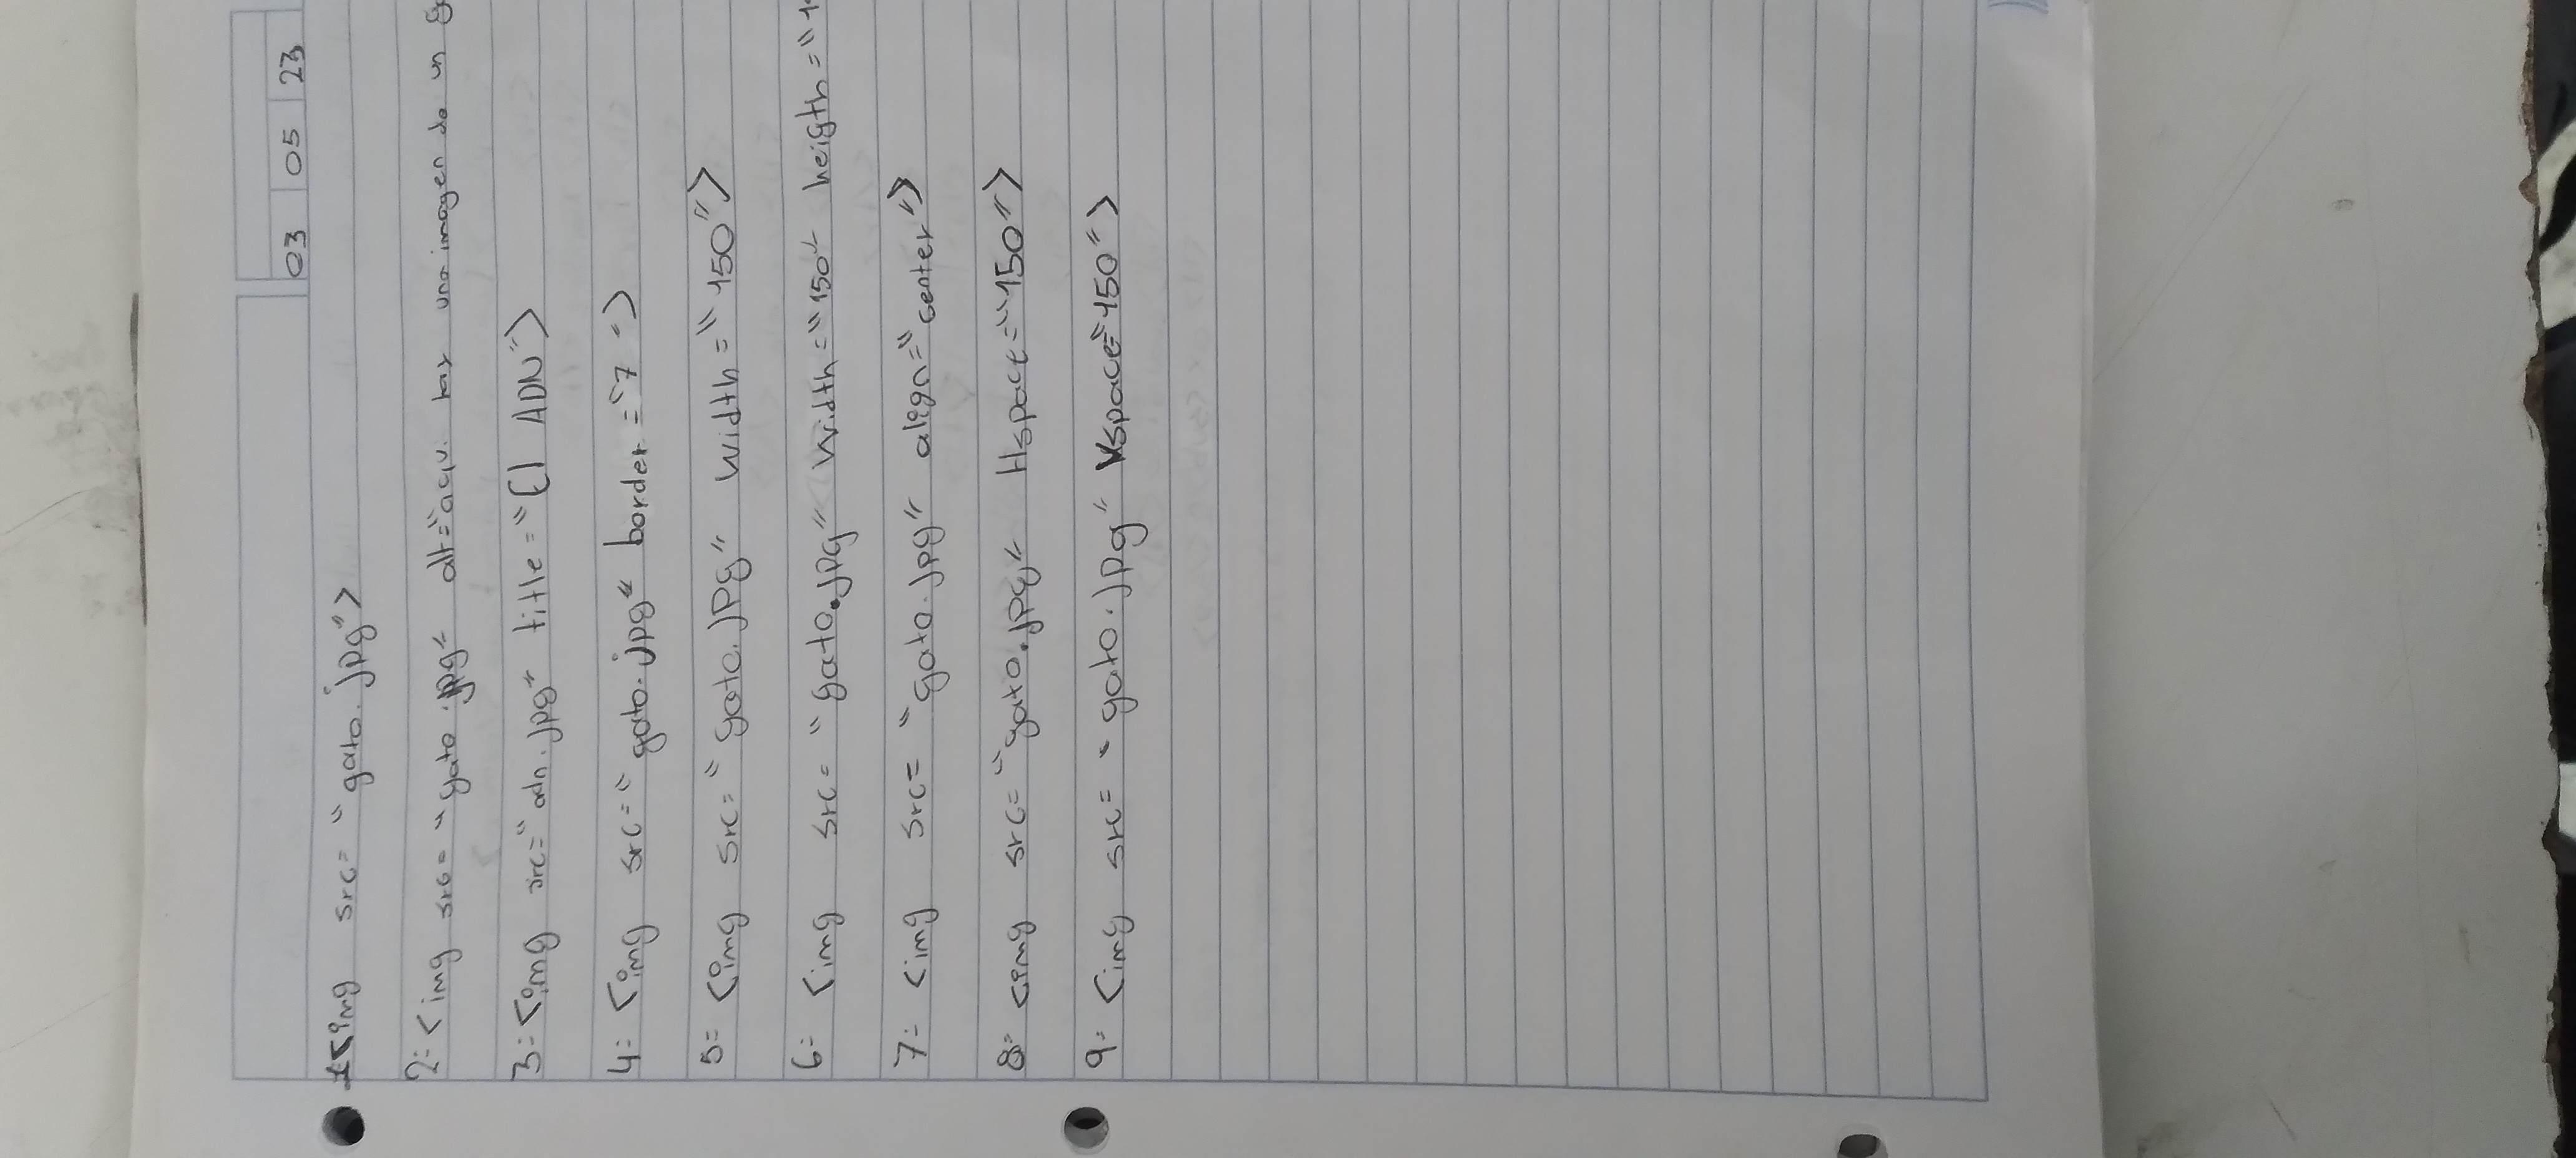 03 05 23
1<img src= "gato.jpg">
2= <img src= "gato.jpg" alt="aqui hay una imagen de un
3= <img src="adn.jpg" title="El ADN">
4= <img src="gato.jpg" border="7">
5= <img src="gato.jpg" width="150">
6= <img src= "gato.jpg" width="150" heigth="1
7= <img src= "gato.jpg" align="center">
8= <img src= "gato.jpg" Hspace="150">
9= <img src= "gato.jpg" Vspace="150">